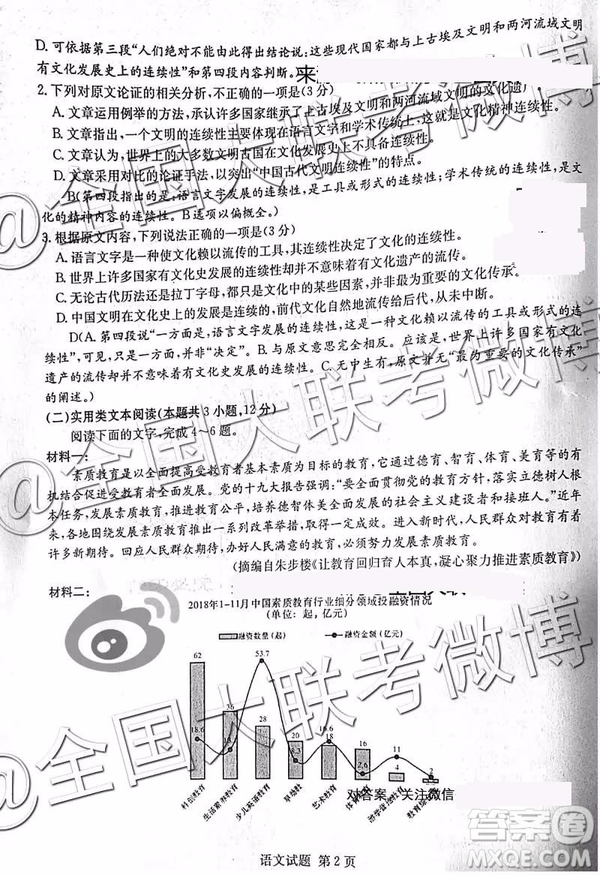 D.可依据第三段“人们绝对不能由此得出结论说:这些现代国家都与上古埃及文明和两河流域文明
有文化发展史上的连续性”和第四段内容判断。
来
2.下列对原文论证的相关分析,不正确的一项是(3分)
A.文章运用例举的方法,承认许多国家继承了上古埃及文明和两河流域文明的文化遗
B.文章指出,一个文明的连续性主要体现在语言文字和学术传统上,也就是文化精神连续性。
C.文章认为,世界上的大多数文明古国在文化史的发展上没有连续性。
D.文章采用对比的论证手法,以突出“中国古代文明连续性”的特点。
B(第四段指出的是,语言文字发展的连续性,是工具或形式的连续性;学术传统的连续性,是文
化的精神内容的连续性。B选项以偏概全。)
3.根据原文内容,下列说法正确的一项是(3分)
A.语言文字是一种使文化赖以流传的工具,其连续性决定了文化的连续性。
B.世界上许多国家有文化史发展的连续性,却并不影响文化遗产的流传。
C.无论古代历法还是拉丁字母,都只代表人类历史文化,而不是最为重要的文化传承。
D.中国文明有文化史上的连续,前代文化自然地流传给后代,从未中断。
D(A.第四段说“一方面是,语言文字发展的连续性,这是一种文化赖以流传的工具或形式的连
续性”,可见,只是其中一方面,并非“决定”。B.与原文意思完全相反。应该是,世界许多国家有文化
遗产的流传并不影响其没有文化史发展的连续性。C.无中生有,原文并无“最为重要的文化传承”
的阐述。)
(二)实用类文本阅读(本题共3小题,12分)
阅读下面的文字,完成4～6题。
材料一:
素质教育是以全面提高受教育者基本素质为目的的教育,它通过德育、智育、体育、美育等的有
机结合促进受教育者的发展。党的十九大报告强调:“要全面贯彻党的教育方针,落实立德树人根
本任务,发展素质教育,推进教育公平,培养德智体美全面发展的社会主义建设者和接班人。”近年
来,各地围绕发展素质教育推出一系列改革举措,取得一定成效。进入新时代,人民群众对教育有
许多新期待。回应人民群众期待,办好人民满意的教育,必须大力发展素质教育。
(摘编自朱步楼《让教育回归育人本真,凝心聚力推进素质教育》)
材料二:
2018年1-11月中国素质教育行业细分领域投融资情况
(单位:起,亿元)
融资数量(起) 融资金额(亿元)
62 53.7
36
28
18.6 20 16.6
18 16
11
4
科创教育 生活素养教育 少儿英语教育 早幼教 艺术教育
对答案,关注微信
语文试题 第2页
@全国大联考微博
答案圈